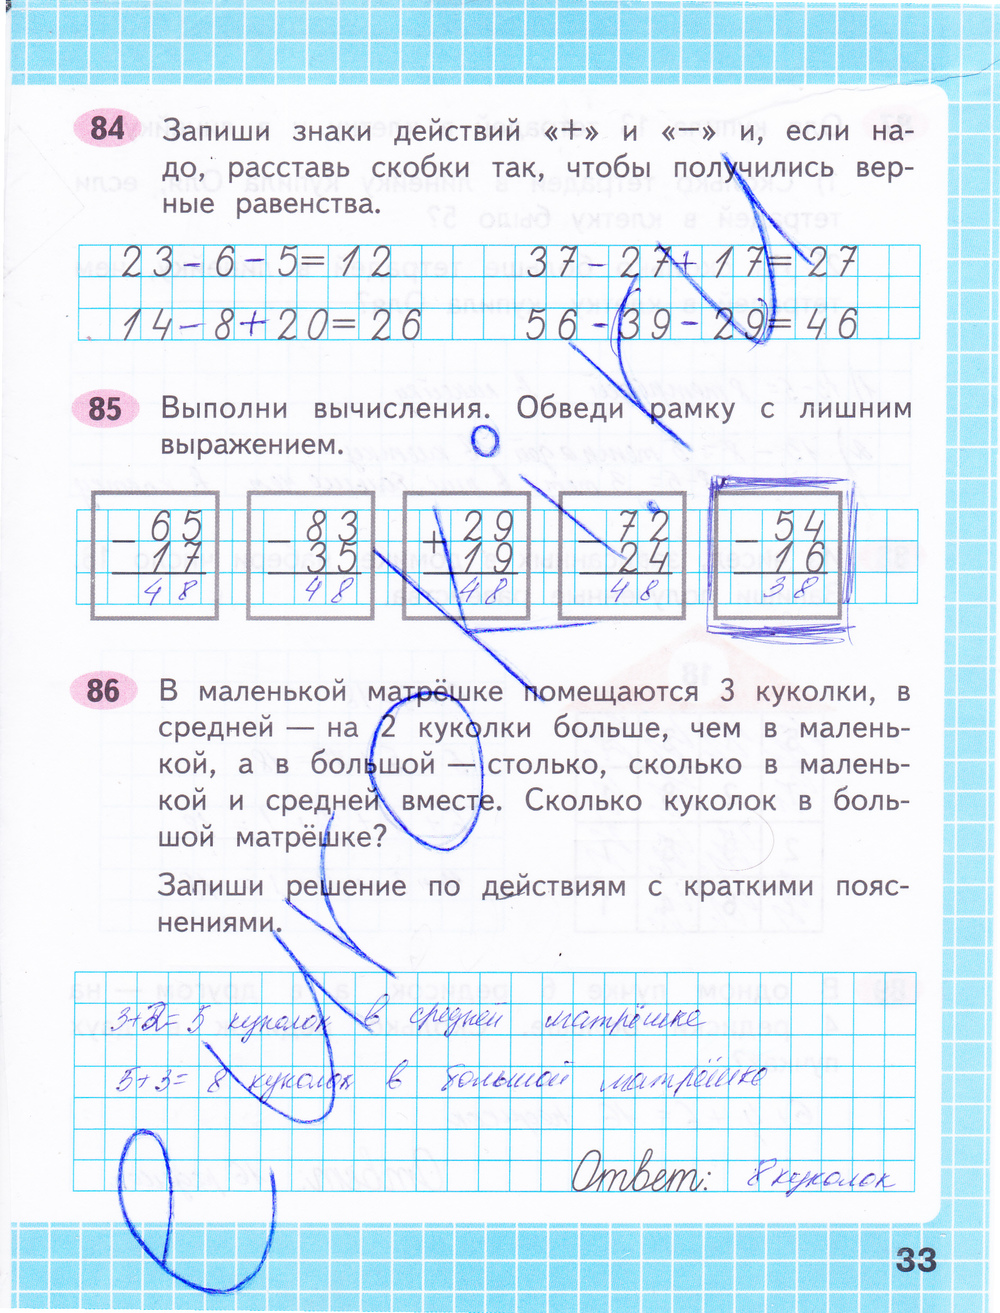 84 Запиши знаки действий «+» и «−» и, если на-
до, расставь скобки так, чтобы получились вер-
ные равенства.
23-6-5=12 37-27+17=27
14-8+20=26 56-(39-29)=46
85 Выполни вычисления. Обведи рамку с лишним
выражением.
65 83 29 72 54
− − + − −
17 35 19 24 16
48 48 48 48 38
86 В маленькой матрёшке помещаются 3 куколки, в
средней — на 2 куколки больше, чем в малень-
кой, а в большой — столько, сколько в малень-
кой и средней вместе. Сколько куколок в боль-
шой матрёшке?
Запиши решение по действиям с краткими пояс-
нениями.
3+2=5 куколок в средней матрёшке
5+3=8 куколок в большой матрёшке
Ответ: 8 куколок
33